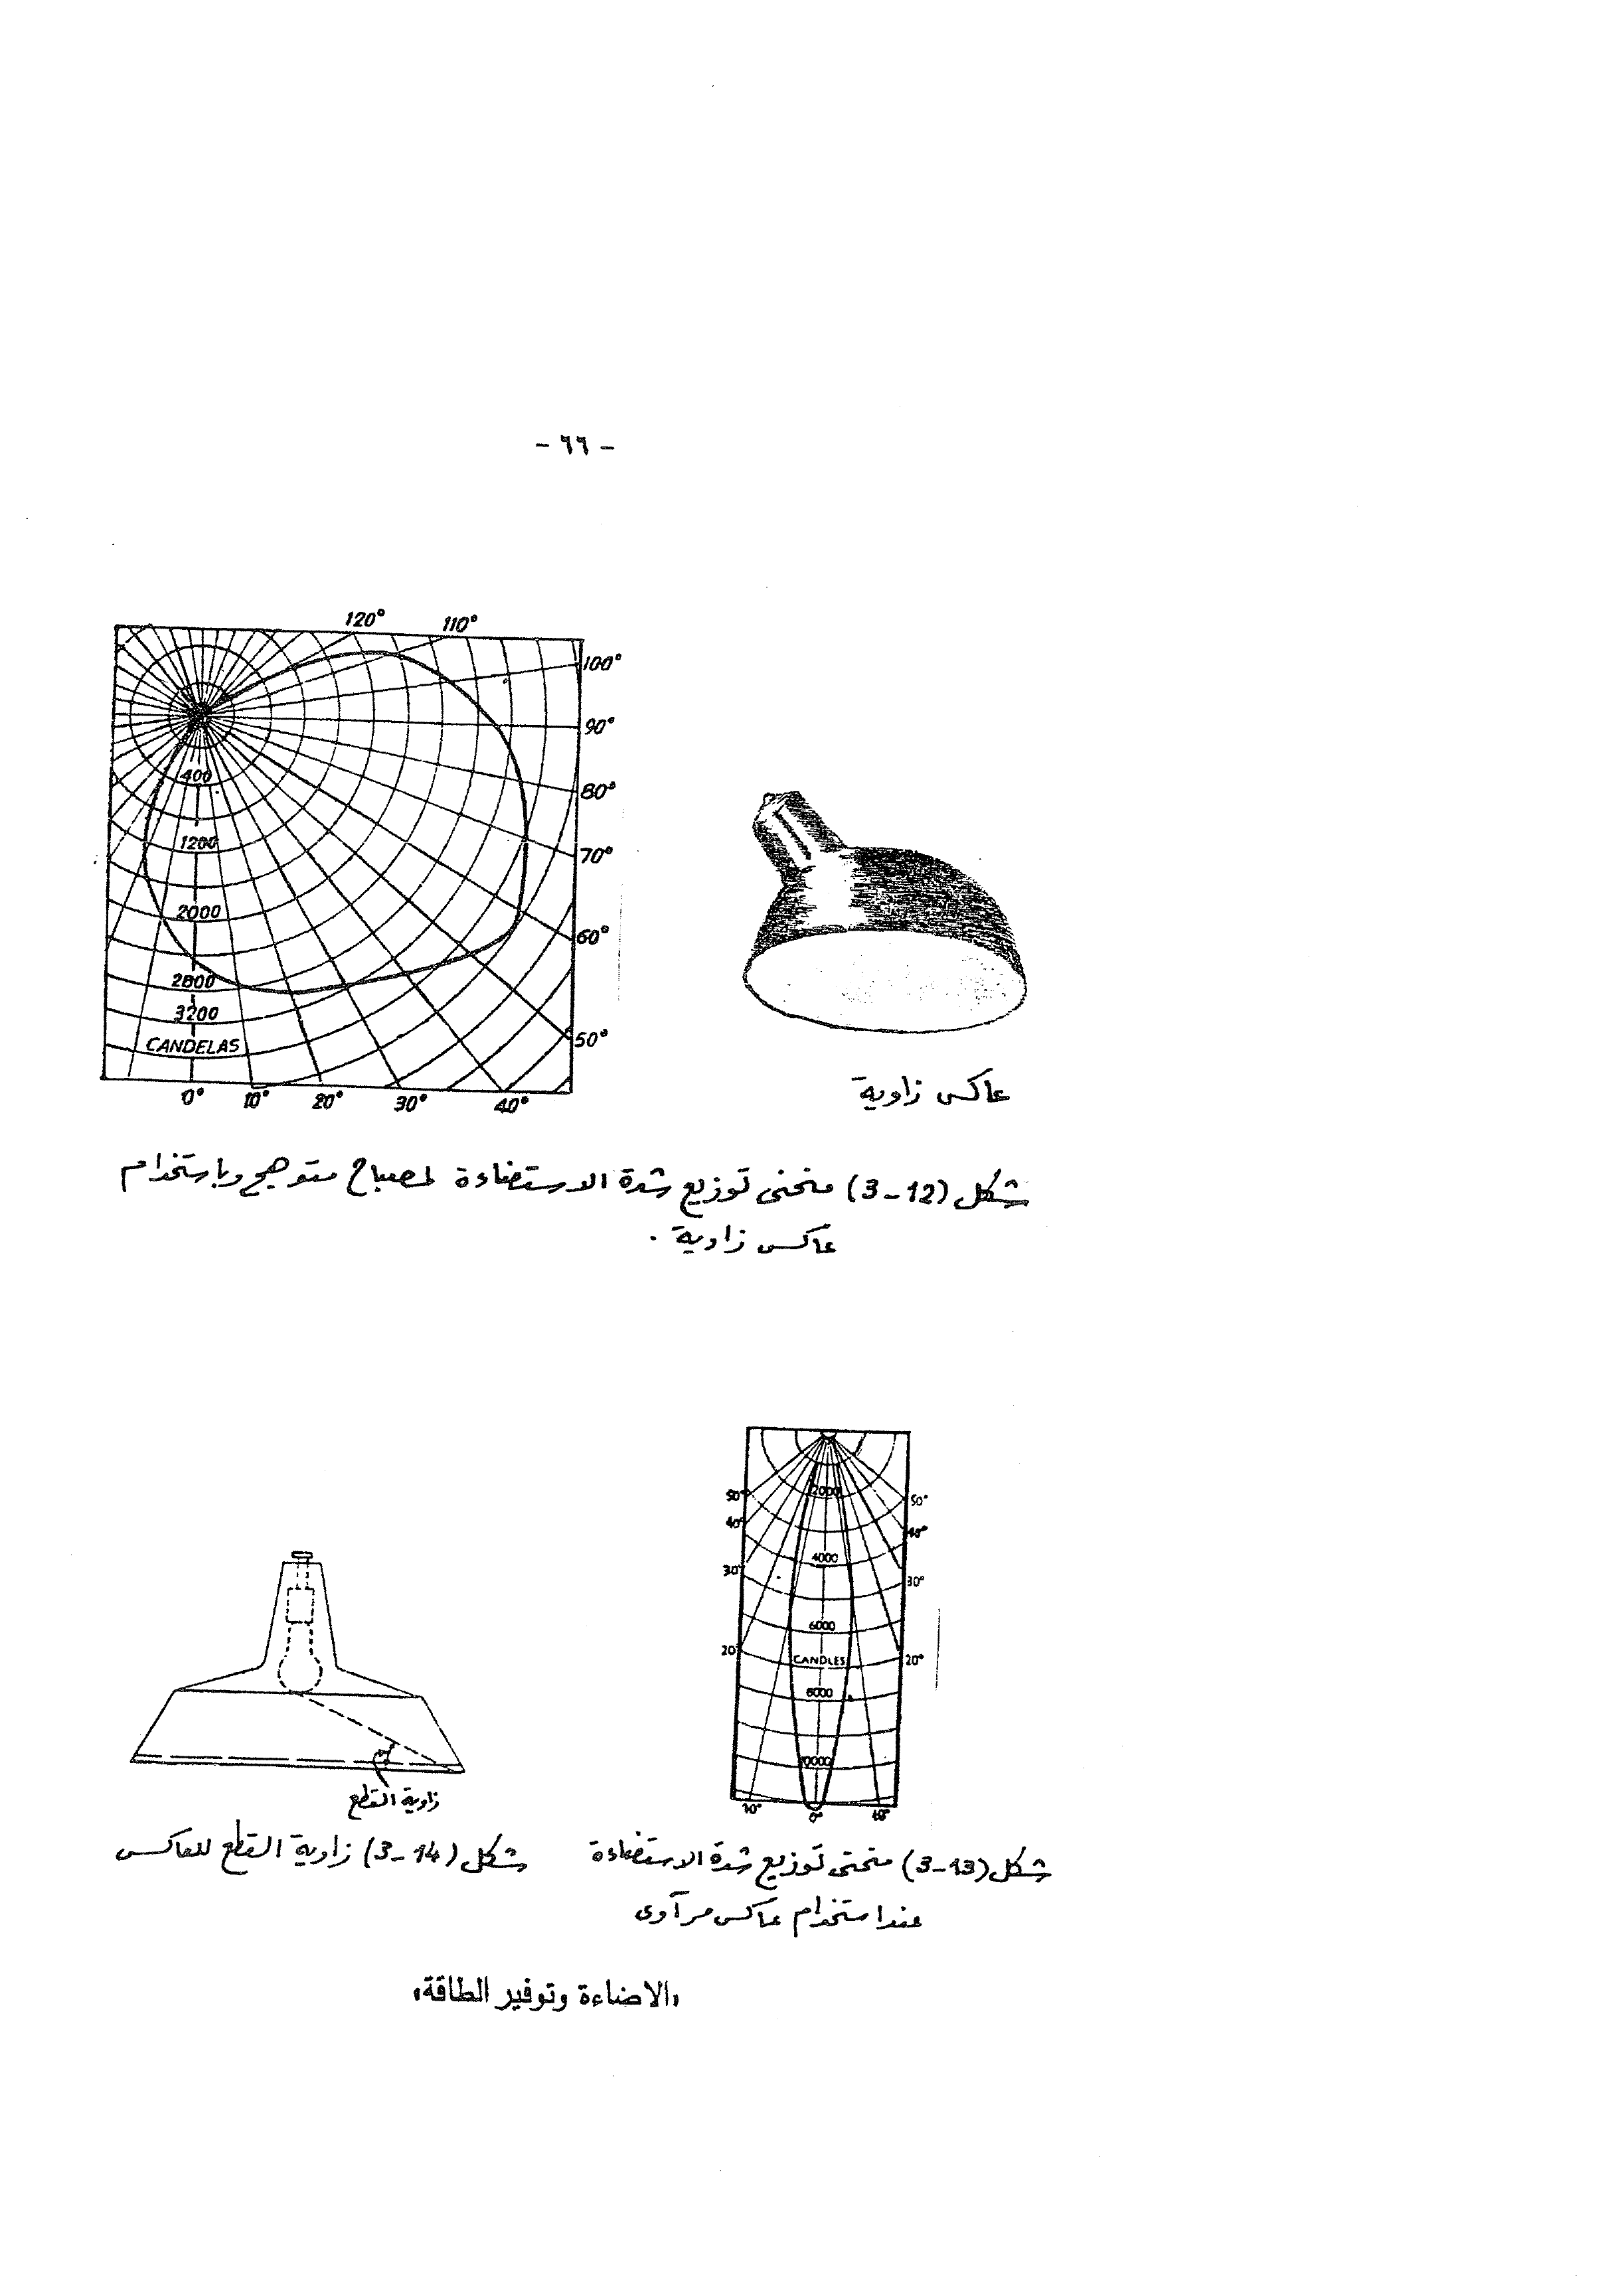 - ٦٦ -
120° 110°
100°
90°
80°
70°
60°
50°
400
1200
2000
2800
3200
CANDELAS
0° 10° 20° 30° 40°
عاكس زاوية
شكل (12-3) منحنى توزيع شدة الاستضاءة لمصباح متوهج وباستخدام
عاكس زاوية .
50° 50°
40° 40°
30° 30°
20° 20°
2000
4000
6000
CANDLES
8000
10000
10° 0° 10°
زاوية القطع
شكل (13-3) منحنى توزيع شدة الاستضاءة
عند استخدام عاكس مرآوى
شكل (14-3) زاوية القطع للعاكس
«الاضاءة وتوفير الطاقة»